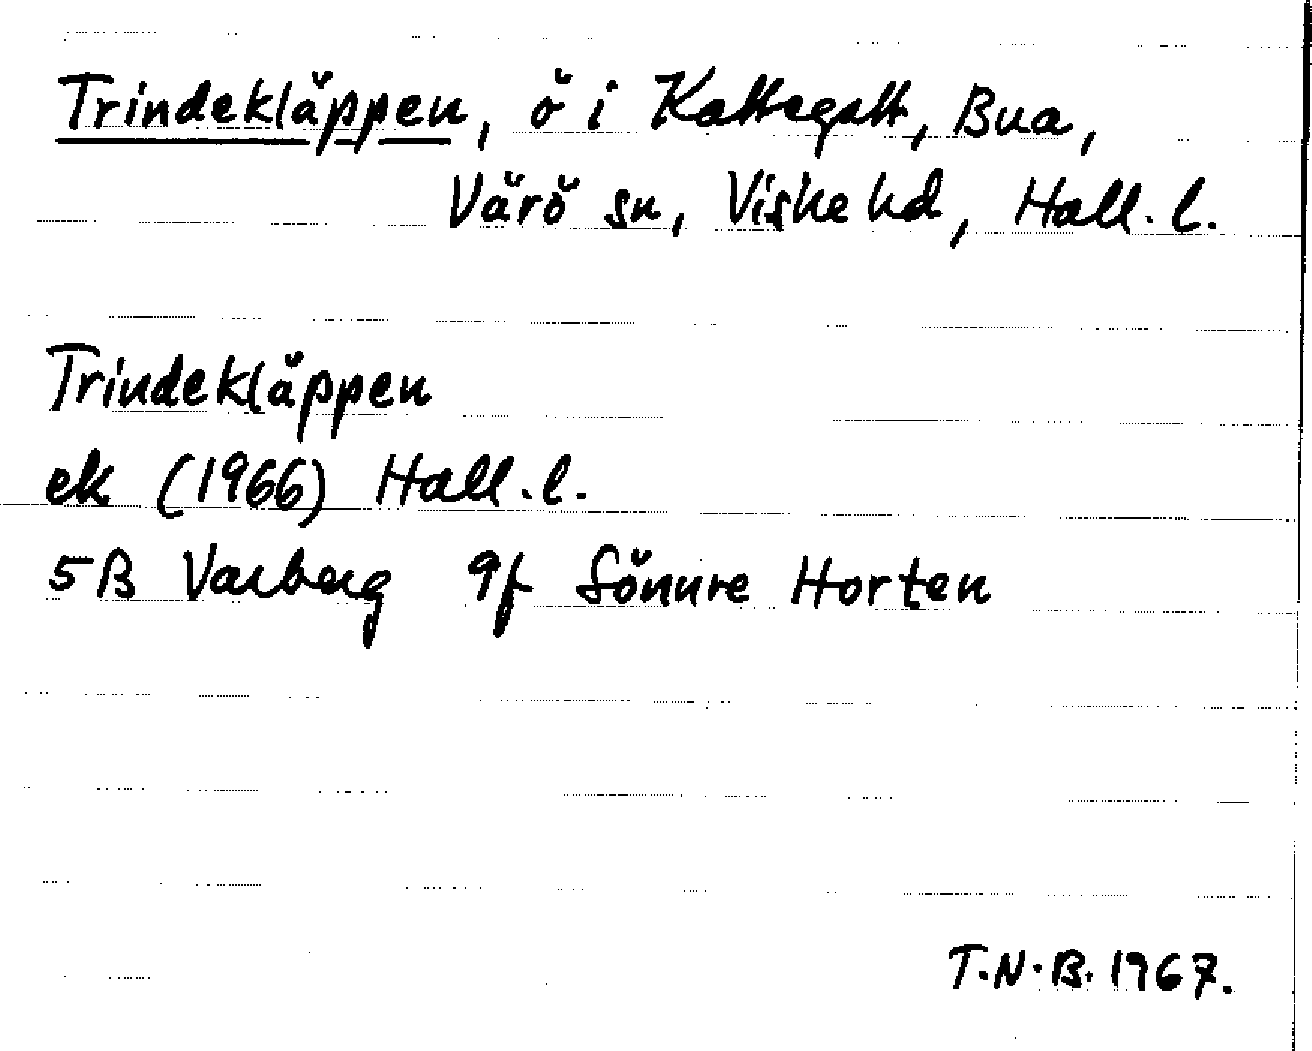 Trindekläppen, ö i Kattegatt, Bua,
Värö sn, Viske hd, Hall. l.
Trindekläppen
ek (1966) Hall. l.
5B Varberg 9f Sönnre Horten
T.N.B. 1967.